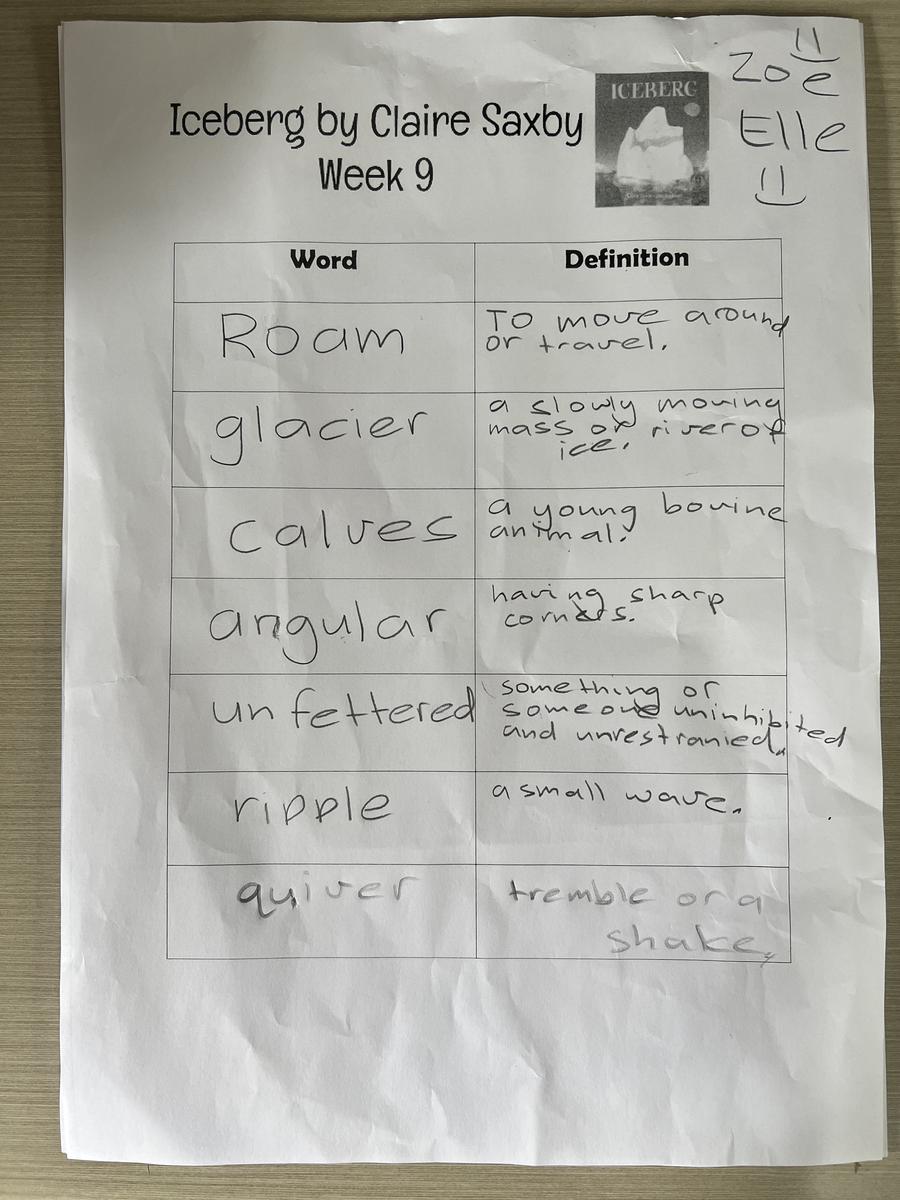 Zoe
Elle
Iceberg by Claire Saxby
Week 9
ICEBERG
Word
Definition
Roam
To move around
or travel.
glacier
a slowly moving
mass or river of
ice.
calves
a young bovine
animal.
angular
having sharp
corners.
unfettered
something or
someone uninhibited
and unrestranied.
ripple
a small wave.
quiver
tremble or a
shake.